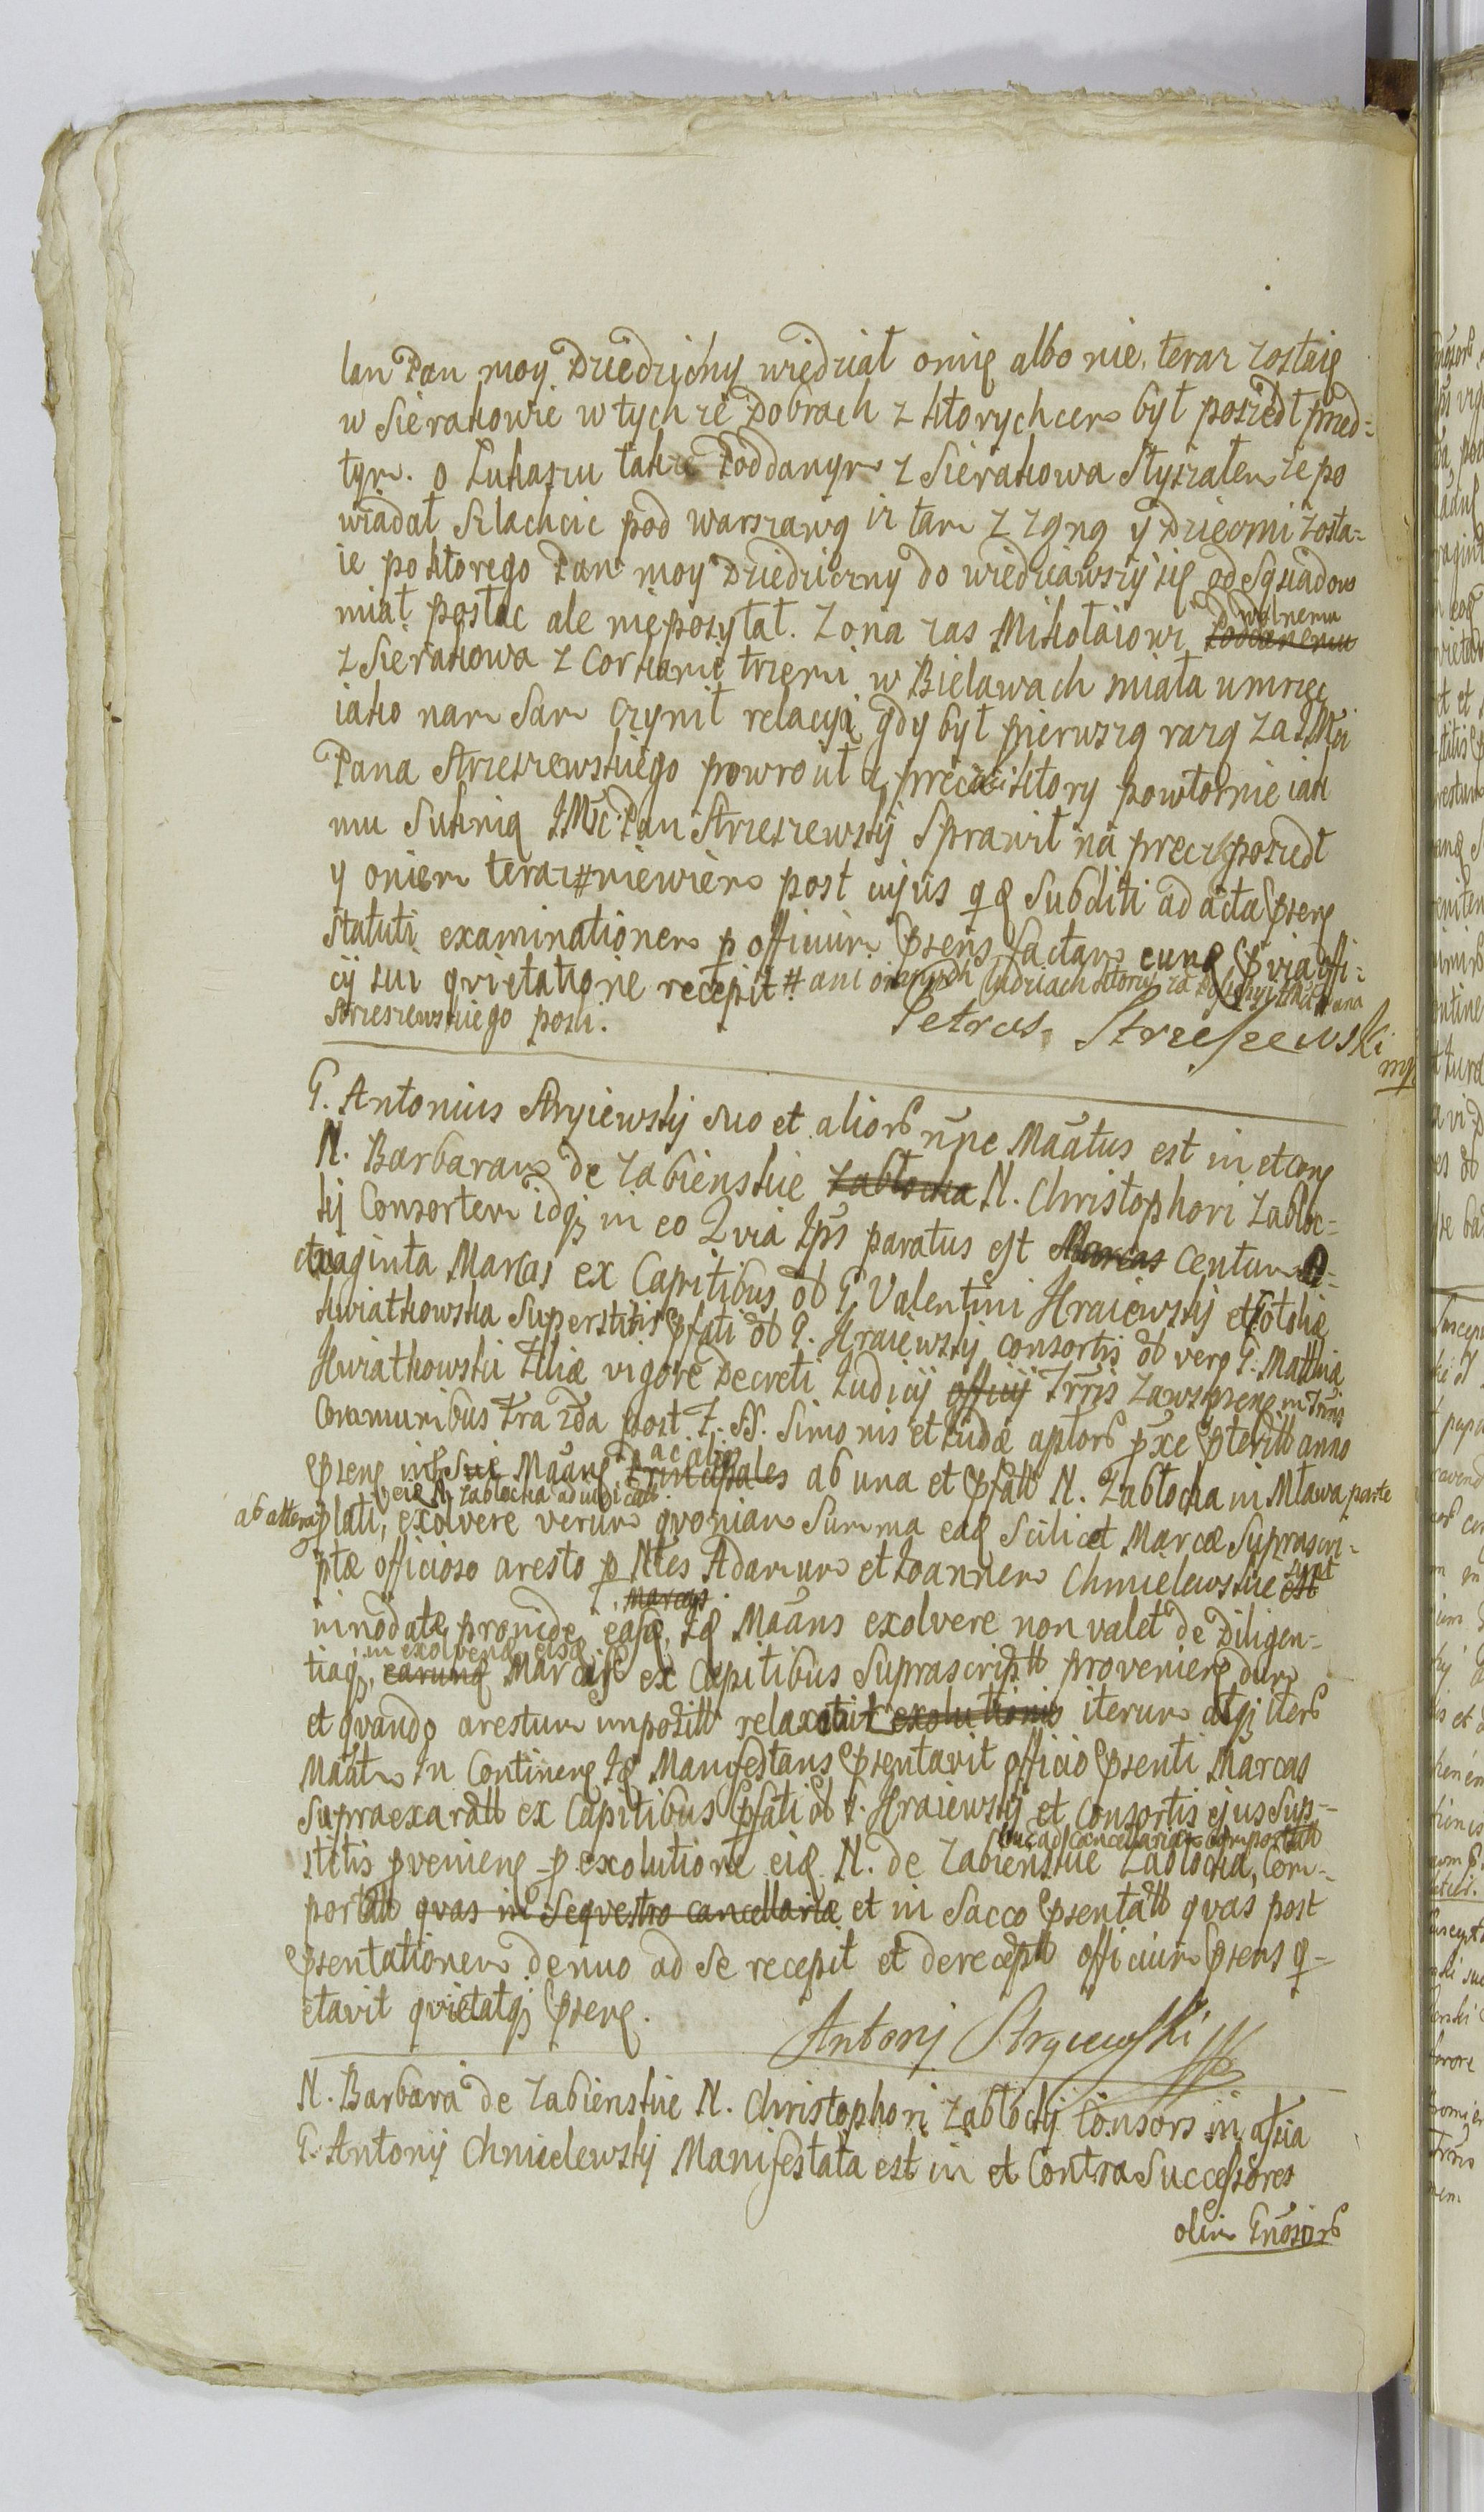 lan Pan moy Dziedziczny wiedział omię albo nie, teraz zostaię
w Sierakowie w tych ze Dobrach z ktorychem był poszedł przed=
tym. o Łukaszu także Poddanym z Sierakowa słyszałem ze po
wiadał Szlachcic pod warszawą iz tam z zgną y dziecmi zosta=
ie po ktorego Pan moy Dziedziczny do wiedziawszy się od Sąsiadow
miał posłac ale nieposyłał. Zona zas Mikołaiowi Poddanemu
wolnemu
z Sierakowa z Corkami trzemi w Bielawach miała umrzec
iako nam sam czynił relacyą gdy był pierwszą razą za JMci
Pana Strzeszewskiego powrocił z precz ktory powtornie iak
mu Suknią JMśc Pan Strzeszewskij sprawił na precz poszedł
y oniem teraz # niewiem post cujus q Subditi ad acta psere
statuti examinationem p officium psens factam eund p via offi=
cij sui qvietatione recepit # ani oinnych ludziach ktorzy za
Strzeszewskiego poszli.
Petrus Strzeszewski
mp
G. Antonius Stryiewskij suo et aliorb nne Maatus est in et cong
N. Barbaram de Zabienskie Zablocka N. Christophori Zabloc=
kij Consortem idq in eo Qvia Ips paratus est Marcas centum O=
ctuaginta Marcas ex Capitibus ob G Valentini Kraiewskij et
Kwiatkowska Superstitis pfati ob G. Kraiewskij consortis ob vero G. Matthia
Kwiatkowski Filiæ vigore Decreti Judicij officij Trris Zawspreng in Trris
Communibus Fra 2da post F. SS. Simonis et Judæ aptorb pxe pteritt anno
ac alios
pseng insue Maang Principales ab una et pfatt N. Zabłocka in Mława parte
veie N. Zablocka adiudicatt
ab altera plati, exolvere verum qvoniam Summa eaq scilicet Marcæ suprascri=
ptæ officioso aresto p Ntes Adamum et Joannem Chmielewskie est
sunt
innodatæ proinde easq Iq Maans exolvere non valet de Diligen=
Marcas
in exolveng eisq
tiaq, earumq Marcis ex Capitibus suprascriptt provenieng dum
et qvando arestum imposittt relaxatit exolutionis iterum atqi iterb
Maatr In Continerg Iq Manifestans psentavit officio psenti Marcas
supraexaratt ex Capitibus pfati ob G. Kraiewskij et Consortis ejus Sup=
stitis pvenieng p exolutione eiq N. de Zabienskie Zablocka, Com=
huc ad cancellariam comportatt
portatt qvas in Seqvestro cancellariæ et in Sacco psentatt qvas post
psentationem denuo ad se recepit et de receptt officium psens q=
etavit qvietatqi pseng.
Antonj Stryiewski
N. Barbara de Zabienskie N. Christophori Zabłockij Consors in assia
G. Antonij Chmielewskij Manifestata est in et Contra Successores
olim Gnosorb